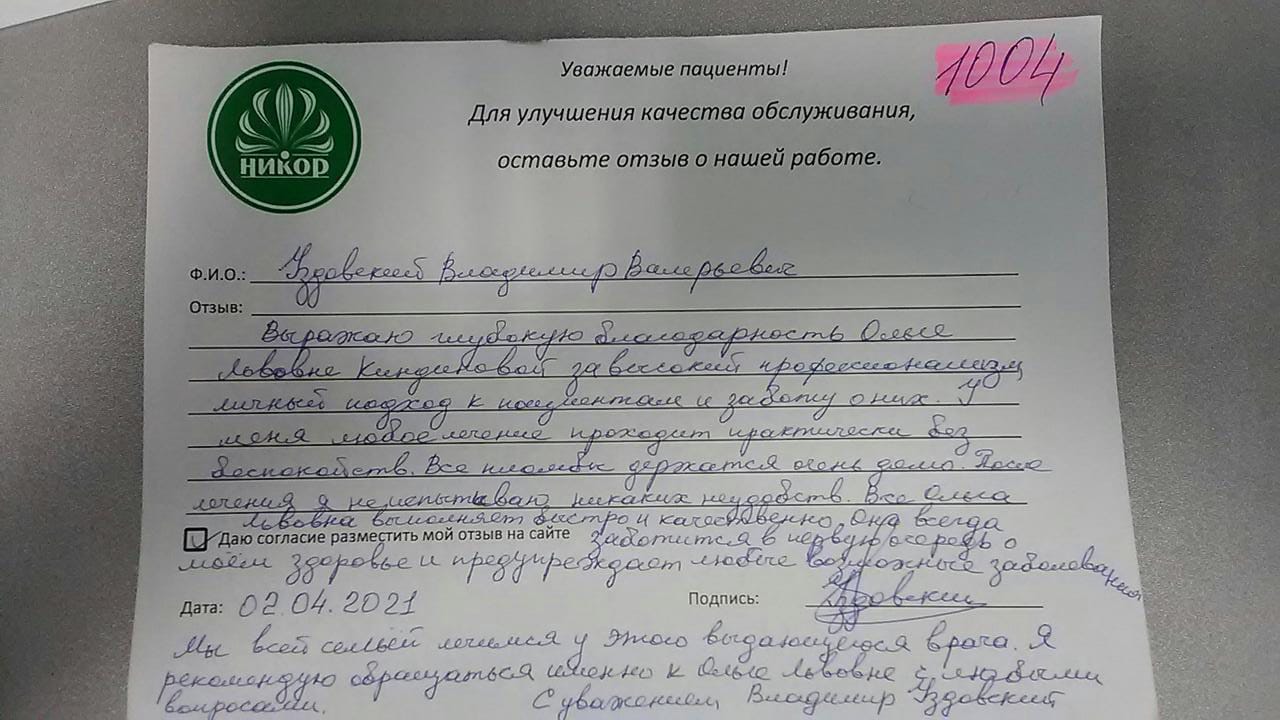 1004
Уважаемые пациенты!
Для улучшения качества обслуживания,
оставьте отзыв о нашей работе.
НИКОР
Ф.И.О.: Уздовский Владимир Валерьевич
Отзыв:
Выражаю глубокую благодарность Ольге
Львовне Киндиновой за высокий профессионализм,
личный подход к пациентам и заботу о них. У
меня любое лечение проходит практически без
беспокойств. Все пломбы держатся очень долго. После
лечения я не испытываю никаких неудобств. Все Ольга
Львовна выполняет быстро и качественно. Она всегда
Даю согласие разместить мой отзыв на сайте заботится в первую очередь о
моём здоровье и предупреждает любые возможные заболевания
Дата: 02.04.2021 Подпись: Уздовский
Мы всей семьёй лечимся у этого выдающегося врача. Я
рекомендую обращаться именно к Ольге Львовне с любыми
вопросами. С уважением Владимир Уздовский